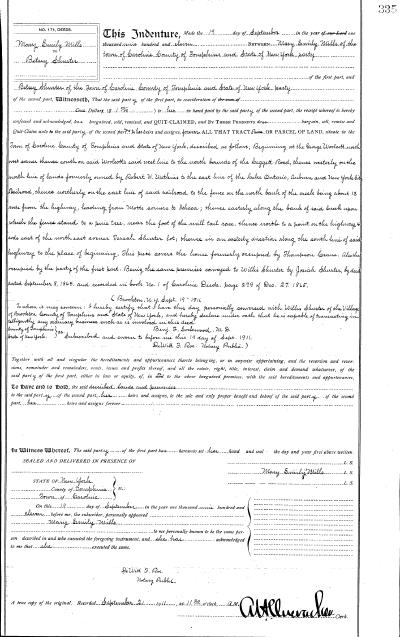 335
NO. 171, DEEDS.
Mary Emily Mills
to
Betsey Shurter
This Indenture, Made the 19 day of September in the year
one thousand nine hundred and eleven BETWEEN Mary Emily Mills of the
town of Caroline County of Tompkins and State of New York, party
of the first part, and
Betsey Shurter of the Town of Caroline County of Tompkins and State of New York, party
of the second part, Witnesseth, That the said party of the first part, in consideration of
One Dollar ($ 1 00/100 ) to her in hand paid by the said party of the second part, the receipt whereof is hereby
confessed and acknowledged, has bargained, sold, remised, and QUIT-CLAIMED, AND BY THESE PRESENTS does bargain, sell, remise and
Quit-Claim unto the said party of the second part heirs and assigns, forever, ALL THAT TRACT OR PARCEL OF LAND, situate in the
Town of Caroline County of Tompkins and State of New York, described as follows, Beginning at the
thence south on said west line to the north bounds of the Road, thence westerly on the
north line of lands formerly owned by Robert W. to the east line of the Lake Ontario, Auburn and New York
Railroad, thence northerly on the east line of said railroad to the fence on the north bank of the about 13
rods from the highway, leading from Motts corners to Ithaca; thence easterly along the bank of said
which the fence stood to a pine tree, near the foot of the mill tail race, thence north to a point on the highway, 4
rods east of the north east corner Shurter lot; thence in an easterly direction along the south line of said
highway to the place of beginning. This piece covers the house formerly occupied by Thompson
occupied by the party of the first part. Being the same premises conveyed to Willis Shurter by Josiah Shurter, by deed
dated September 8, 186 and recorded in book No. 1 of Caroline Deeds, page 529 of Dec. 27, 1865.
Brookton, N.Y. Sept. 19" 1911
To whom it may concern: I hereby certify that I have this day personally conversed with Willis Shurter of the Village
of Brookton, County of Tompkins and State of New York, and hereby declare under oath that he is capable of transacting
intelligently any ordinary business such as is involved in this deed
County of Tompkins } ss. Benj. F. Lockwood, M. D.
State of New York } Subscribed and sworn to before me this 19 day of Sept. 1911.
F. Roe. Notary Public. }
Together with all and singular the hereditaments and appurtenances thereto belonging, or in anywise appertaining, and the reversion and reversions,
remainder and remainders, rents, issues and profits thereof, and all the estate, right, title, interest, claim and demand whatsoever, of the
said party of the first part, either in law or equity, of, in and to the above bargained premises, with the said hereditaments and appurtenances,
To Have and to Hold, the said described lands and premises
to the said party of the second part, her heirs and assigns, to the sole and only proper benefit and behoof of the said party of the second
part, her heirs and assigns forever
In Witness Whereof, The said party of the first part has hereunto set her hand and seal the day and year first above written.
SEALED AND DELIVERED IN PRESENCE OF
Mary Emily Mills L. S.
L. S.
L. S.
STATE OF New York
County of Tompkins } ss.
Town of Caroline
On this 19 day of September in the year one thousand nine hundred and
eleven before me, the subscriber, personally appeared
Mary Emily Mills
to me personally known to be the same person
described in and who executed the foregoing instrument, and she has acknowledged
to me that she executed the same.
F. Roe,
Notary Public
A true copy of the original. Recorded September 21 1911 at 11.30 o'clock A.M.
Clerk.